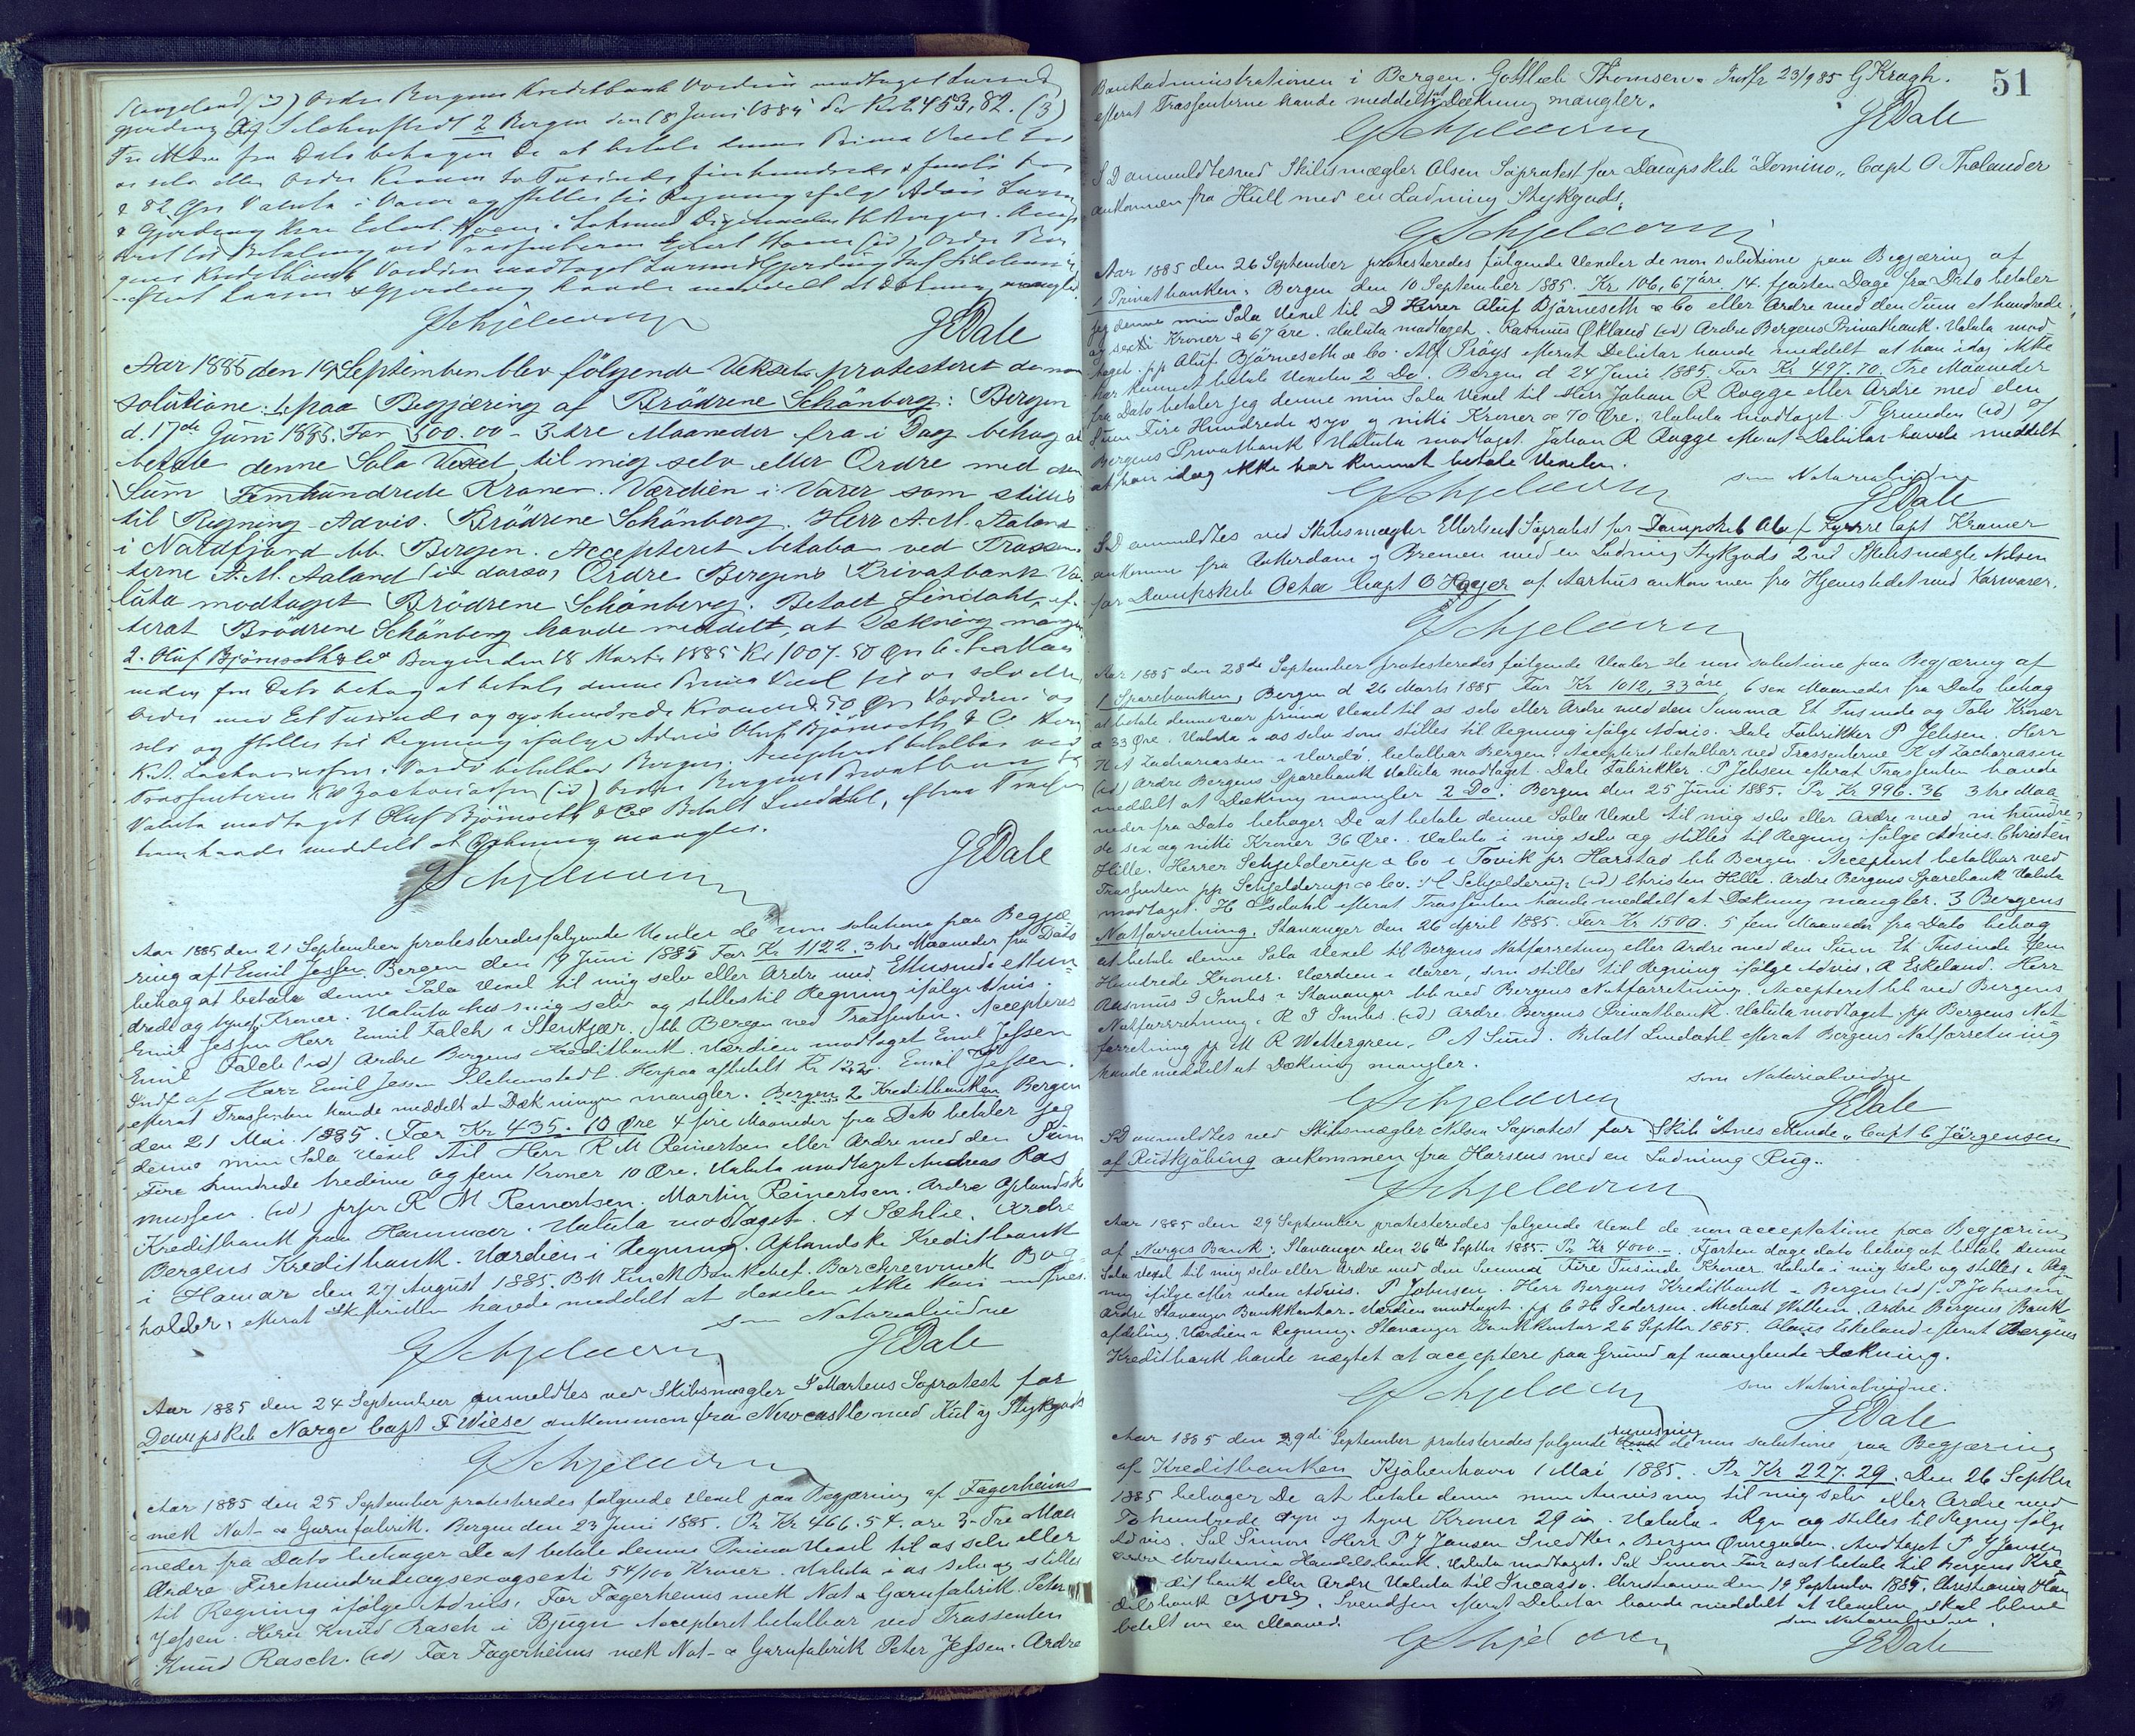 Ordre Bergens Kreditbank Værdien modtaget Larsen &
Gjerding 2 Bergen den 18 Juni 1885 For Kr 2453,82. (3)
Tre Mdr fra Dato behager De at betale denne Prima Vexel til
os selv eller Ordre Kroner to Tusinde firehundrede & femti tre
& 82 Øre Valuta i Varer og stilles til Regning ifølge Advis Larsen
& Gjerding Herr
ved Trassenterne Ordre Ber-
gens Kreditbank Værdien modtaget Larsen & Gjerding
efterat Larsen & Gjerding havde meddelt at Dækning mangler.
G Schjelderup
G E Dale
Aar 1885 den 19 September blev følgende Veksel protesteret de non
solutione: 1. paa Begjæring af Brödrene Schönberg: Bergen
d. 17de Juni 1885. For 500.00 - 3 tre Maaneder fra i Dag behag at
betale denne Sola Vexel til mig selv eller Ordre med den
Sum Femhundrede Kroner. Værdien i Varer som stilles
til Regning - Advis. Brödrene Schönberg. Herr A. M. Aaland
i Nordfjord bb. Bergen. Accepteret betalbar ved Trassen-
terne A. M. Aaland (in dorso) Ordre Bergens Privatbank Va-
luta modtaget Brödrene Schönberg. Betalt Lindahl, ef-
terat Brödrene Schönberg havde meddelt, at Dækning mangler
2. Oluf Bjørneseth & Co Bergen den 18 Marts 1885 Kr 1007.50 Øre 6. sex Maa-
neder fra Dato behag at betale denne Prima Vexel til os selv eller
Ordre med Et Tusinde og syv Kroner & 50 Øre Værdien i os
selv og stilles til Regning ifølge Advis Oluf Bjørneseth & Co Herr
K. A. Zachariassen i Vardö betalbar Bergen. Accepteret betalbar ved
Trassenterne K A Zachariassen (id) Ordre Bergens Privatbank
Valuta modtaget Oluf Bjørneseth & Co Betalt Lindahl, efterat Trassen-
terne havde meddelt at Dækning mangler.
G Schjelderup
G E Dale
Aar 1885 den 21 September protesteredes følgende Vexler de non solutione paa Begjæ-
ring af 1 Emil Jessen Bergen den 19 Juni 1885 For Kr 1122. 3 tre Maaneder fra Dato
behag at betale denne Sola Vexel til mig selv eller Ordre med Ettusinde ethun-
drede og tyve Kroner. Valuta hos mig selv og stilles til Regning ifølge Advis.
Emil Jessen Herr Emil Falch i Stenkjær. bb Bergen ved Trassenten. Accepteres
Emil Falch (id) Ordre Bergens Kreditbank. Værdien modtaget Emil Jessen
Indf af Herr Emil Jessen. Herpaa afbetalt Kr 122. Emil Jessen.
efterat Trassenten havde meddelt at Dækningen mangler. Bergen 2 Kreditbanken Bergen
den 21 Mai 1885. For Kr 435.10 Øre 4 fire Maaneder fra Dato betaler jeg
denne min Sola Vexel til Herr R M Reinertsen eller Ordre med den Sum
Fire hundrede tredive og fem Kroner 10 Øre. Valuta modtaget Andreas Ras-
mussen. (id) prpr R M Reinertsen. Martin Reinertsen. Ordre Oplandske
Kreditbank paa Hammer. Valuta modtaget. A Sæhlie. Ordre
Bergens Kreditbank. Værdien i Regning. Oplandske Kreditbank
i Hamar den 27 August 1885. B M Finck Bankchef. Borchrewinck Bog-
holder, efterat Skifteretten havde meddelt at Vexelen ikke kan indfries
som Notarialvidne
G Schjelderup
G E Dale
Aar 1885 den 24 September anmeldtes ved Skibsmægler S Martens Søprotest for
Dampskib Norge Capt F Wiese ankommen fra Newcastle med Kul og Stykgods
G Schjelderup
Aar 1885 den 25 September protesteredes følgende Vexel paa Begjæring af Fagerheims
mek Not- & Garnfabrik. Bergen den 23 Juni 1885. Pr Kr 466.54. øre 3 - Tre Maa-
neder fra Dato behager De at betale denne Prima Vexel til os selv eller
Ordre Firehundredeogsexogsexti 54/100 Kroner. Valuta i os selv og stilles
til Regning ifølge Advis. For Fagerheims mek Not & Garnfabrik. Peter
Jessen. Herr Knud Rasch i Bjugn Accepteret betalbar ved Trassenten
Knud Rasch. (id) For Fagerheims mek Not- & Garnfabrik Peter Jessen. Ordre
51
Bankadministrationen i Bergen. Gottlieb Thomsen. Indfr 23/9 85 G Kragh.
efterat Trassenterne havde meddelt at Dækning mangler.
G Schjelderup
G E Dale
S D anmeldtes ved Skibsmægler Olsen Søprotest for Dampskib "Domino" Capt O Tholander
ankommen fra Hull med en Ladning Stykgods.
G Schjelderup
Aar 1885 den 26 September protesteredes følgende Vexeler de non solutione paa Begjæring af
1 Privatbanken. Bergen den 10 September 1885. Kr 106,67 øre. 14. fjorten Dage fra Dato betaler
jeg denne min Sola Vexel til D Herrer Oluf Björneseth & Co eller Ordre med den Sum et hundrede
og sex Kroner & 67 Øre. Valuta modtaget. Rasmus Økland (id) Ordre Bergens Privatbank. Valuta mod-
taget. pp Oluf Björneseth & Co. Alf Pröys efterat Debitor havde meddelt at han idag ikke
har kunnet betale Vexelen 2 Do. Bergen d 24 Juni 1885. For Kr 497.70. Tre Maaneder
fra Dato betaler jeg denne min Sola Vexel til Herr Johan R Rogge eller Ordre med den
Sum Fire Hundrede syv og nitti Kroner & 70 Øre. Valuta modtaget. T Grunden (id) O/
Bergens Privatbank Valuta modtaget. Johan R Rogge efterat Debitor havde meddelt
at han idag ikke har kunnet betale Vexelen.
som Notarialvidne
G Schjelderup
G E Dale
S D anmeldtes ved Skibsmægler Ellertsen Søprotest for Dampskib Capt Kramer
ankommen fra Rotterdam og Bremen med en Ladning Stykgods 2 ved Skibsmægler Nilsen
for Dampskib Octa Capt O Høyer af Aarhus ankommen fra Hjemstedet med Kornvarer.
G Schjelderup
Aar 1885 den 28de September protesteredes følgende Vexler de non solutione paa Begjæring af
1 Sparebanken, Bergen d 26 Marts 1885 For Kr 1012,33 øre 6 sex Maaneder fra Dato behag
at betale denne vor prima Vexel til os selv eller Ordre med den Summa Et Tusinde og Tolv Kroner
& 33 Øre. Valuta i os selv som stilles til Regning ifølge Advis. Dale Fabrikker P Jebsen. Herr
K A Zachariassen i Vardö, betalbar Bergen. Accepteret betalbar ved Trassenterne K A Zachariassen
(id) Ordre Bergens Sparebank Valuta modtaget. Dale Fabrikker. P Jebsen efterat Trassenten havde
meddelt at Dækning mangler 2 Do: Bergen den 25 Juni 1885. Pr Kr 996.36 3 tre Maa-
neder fra Dato behager De at betale denne Sola Vexel til mig selv eller Ordre med ni hundre-
de sex og nitti Kroner 36 Øre. Valuta i mig selv og stilles til Regning ifølge Advis. Christen
Hille. Herrer Schjelderup & Co i Tovik pr Harstad bb Bergen. Accepteret betalbar ved
Trassenten pp Schjelderup & Co. Schjelderup (id) Christen Hille. Ordre Bergens Sparebank Valuta
modtaget. H Isdahl efterat Trassenten havde meddelt at Dækning mangler. 3 Bergens
Notforretning. Stavanger den 26 April 1885. For Kr 1500. 5 fem Maaneder fra Dato behag
at betale denne Sola Vexel til Bergens Notforretning eller Ordre med den Sum Et Tusinde Fem
Hundrede Kroner. Værdien i Varer, som stilles til Regning ifølge Advis. R Eskeland. Herr
Rasmus I i Stavanger bb ved Bergens Notforretning. Accepteret bb ved Bergens
Notforretning. R I (id) Ordre Bergens Privatbank. Valuta modtaget. pp Bergens Not-
forretning pp M R Wettergren. P A Sund. Betalt Lindahl efterat Bergens Notforretning
havde meddelt at Dækning mangler.
som Notarialvidne
G Schjelderup
G E Dale
S D anmeldtes ved Skibsmægler Nilsen Søprotest for Skib "Anes Minde" Capt C Jörgensen
af Rudkjöbing ankommen fra Horsens med en Ladning Rug.
G Schjelderup
Aar 1885 den 29 September protesteredes følgende Vexel de non acceptatione paa Begjæring
af Norges Bank: Stavanger den 26de Septbr 1885. Pr Kr 4000 -. Fjorten dage dato behag at betale denne
Sola Vexel til mig selv eller Ordre med den Summa Fire Tusinde Kroner Valuta i mig selv og stilles i Reg-
ning ifølge eller uden Advis. P Johnsen. Herr Bergens Kreditbank i Bergen (id) P Johnsen
Ordre Stavanger Bankkontor. Værdien modtaget. pp C H Pedersen. Michael Willum. Ordre Bergens Bank-
afdeling. Værdien i Regning. Stavanger Bankkontor 26 Septbr 1885. Eskeland efterat Bergens
Kreditbank havde nægtet at acceptere paa Grund af manglende Dækning.
som Notarialvidne.
G Schjelderup
G E Dale
Anvisning
Aar 1885 den 29de September protesteredes følgende de non solutione paa Begjæring
af Kreditbanken Kjöbenhavn 1 Mai 1885. Pr Kr 227.29. Den 26 Septbr
1885 behager De at betale denne min Anvisning til mig selv eller Ordre med
To hundrede syv og tyve Kroner 29 øre. Valuta i Rgn og stilles til Regning ifølge
Advis. Sal Simon Herr P J Jansen Snedker i Bergen Øvregaden. Modtaget P J Jansen
Ordre Christiania Handelsbank. Valuta modtaget. Sal Simon For os at betale til Bergens Kre-
ditbank eller Ordre Valuta til Incasso. Christiania den 19 September 1885. Christiania Han-
delsbank. Svendsen efterat Debitor havde meddelt at Vexelen skal blive
betalt om en Maaned.
som Notarialvidne.
G Schjelderup
G E Dale